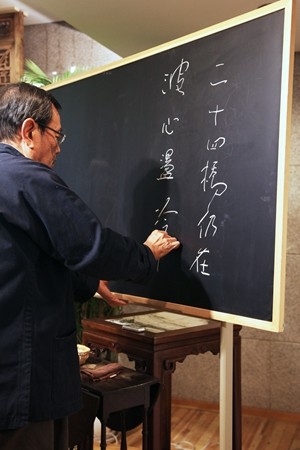 二十四橋仍在
波心盪冷